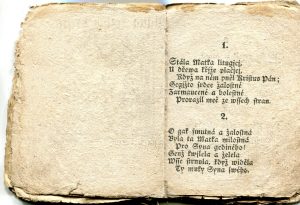 1.
Stála Matka litugjcý,
U dřewa křjže plačjcý,
Když na něm pněl Kristus Pán;
Gegjžto srdce žalostné
Zarmaucené a bolestné
Prorazyl meč ze wssech stran.
2.
O gak smutná a žalostná
Byla ta Matka milostná
Pro Syna gediného!
Genž kwjlela a želela
Wsse strnula, když widěla
Ty muky Syna swého.